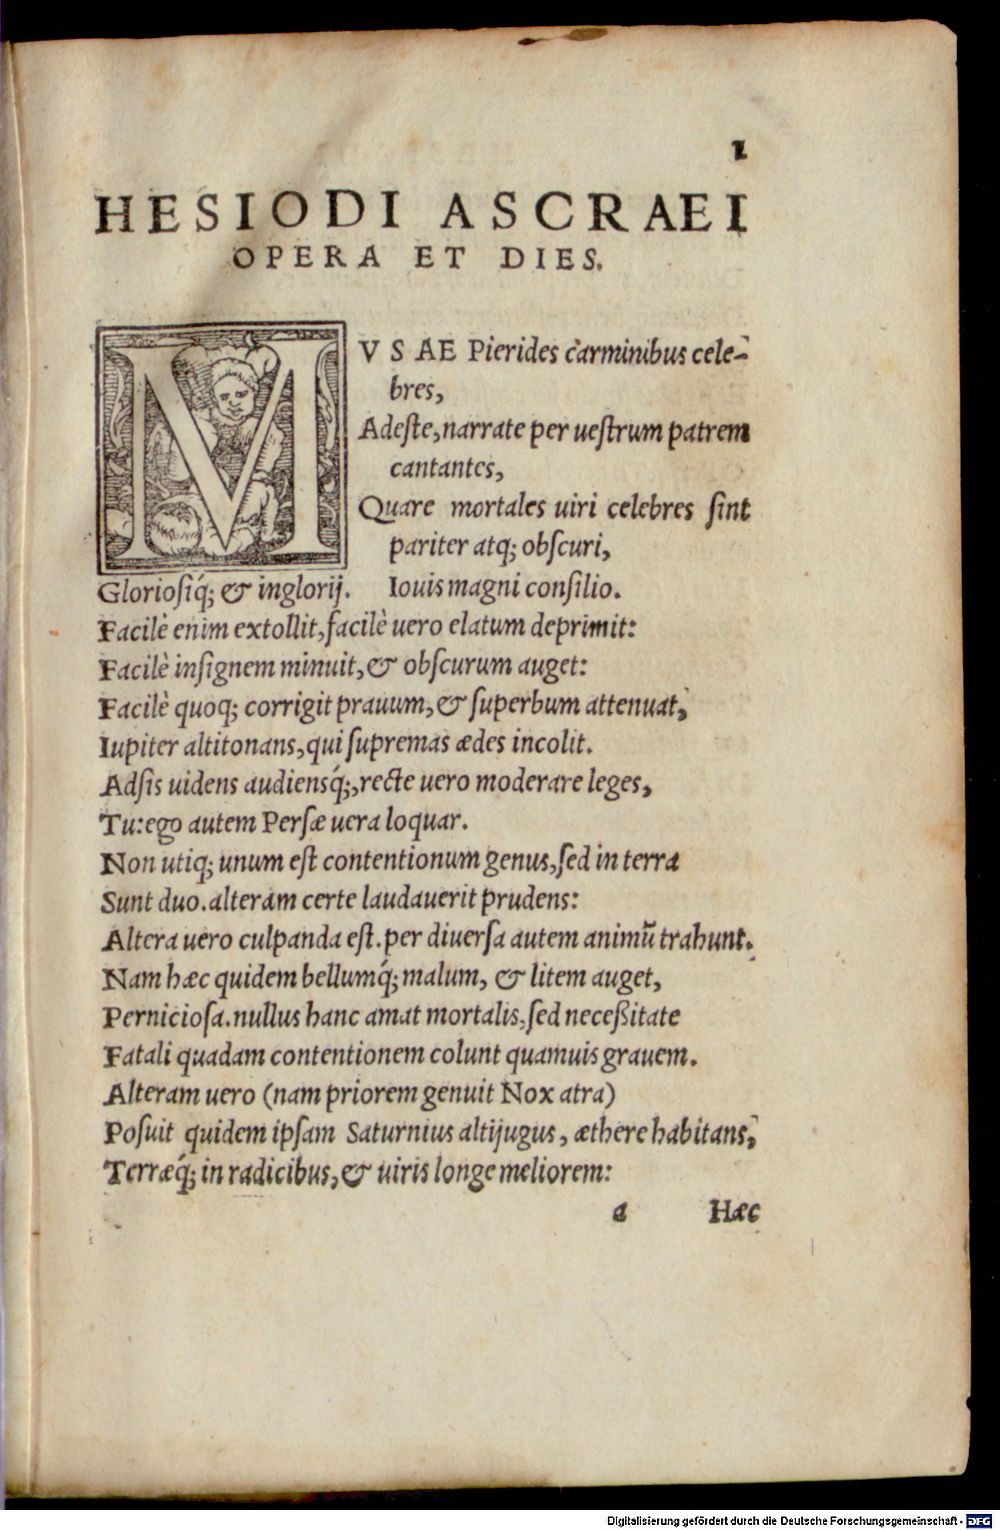 1
HESIODI ASCRAEI
OPERA ET DIES.
MVSAE Pierides carminibus cele-
bres,
Adeste, narrate per uestrum patrem
cantantes,
Quare mortales uiri celebres sint
pariter atq; obscuri,
Gloriosiq́; & inglorij. Iouis magni consilio.
Facilè enim extollit, facilè uero elatum deprimit:
Facilè insignem minuit, & obscurum auget:
Facilè quoq; corrigit prauum, & superbum attenuat,
Iupiter altitonans, qui supremas ædes incolit.
Adsis uidens audiensq́;, recte uero moderare leges,
Tu: ego autem Persæ uera loquar.
Non utiq; unum est contentionum genus, sed in terra
Sunt duo. alteram certe laudauerit prudens:
Altera uero culpanda est. per diuersa autem animũ trahunt.
Nam hæc quidem bellumq́; malum, & litem auget,
Perniciosa. nullus hanc amat mortalis, sed neceßitate
Fatali quadam contentionem colunt quamuis grauem.
Alteram uero (nam priorem genuit Nox atra)
Posuit quidem ipsam Saturnius altijugus, æthere habitans,
Terræq́; in radicibus, & uiris longe meliorem:
a Hæc
Digitalisierung gefördert durch die Deutsche Forschungsgemeinschaft - DFG